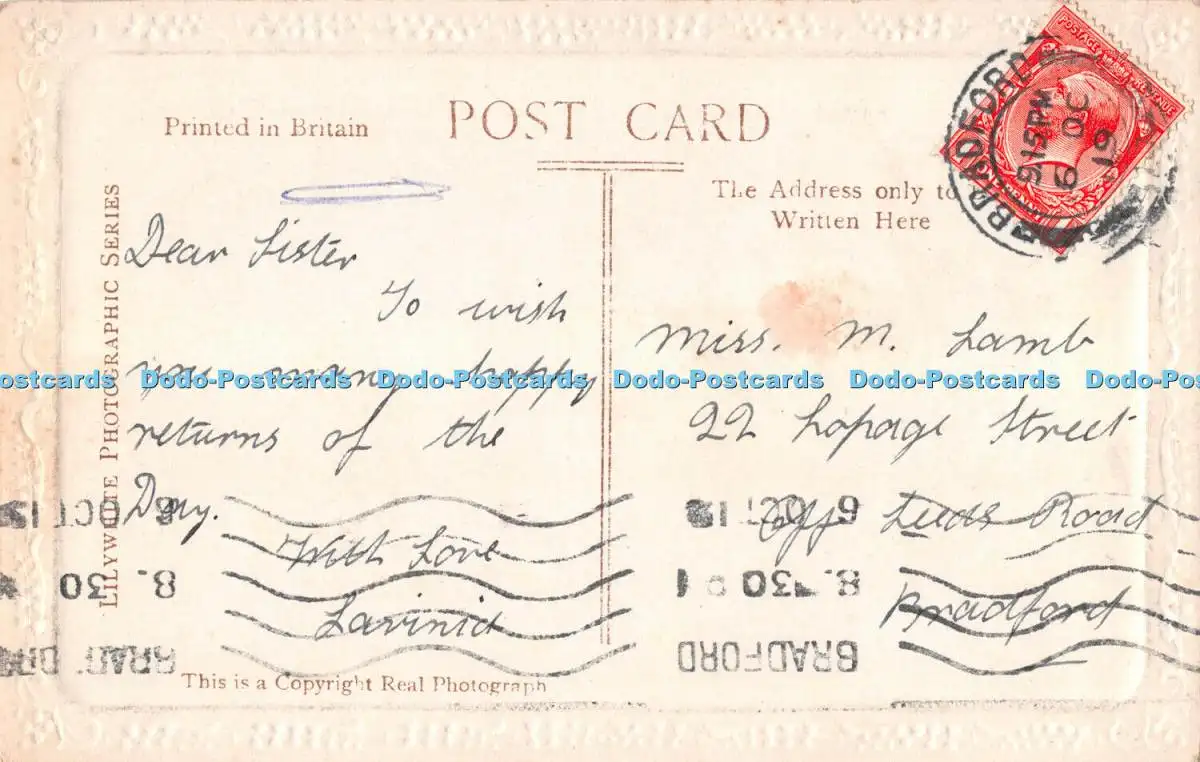 Printed in Britain
POST CARD
The Address only to
Written Here
LILYWHITE PHOTOGRAPHIC SERIES
POSTAGE REVENUE
BRADFORD
9 15 PM
6 OC
19
Dear Sister
To wish
you many happy
returns of the
Day.
With Love
Lavinia
Miss. M. Lamb
22 Lopage Street
Off Leeds Road
Bradford
Dodo-Postcards Dodo-Postcards Dodo-Postcards Dodo-Postcards Dodo-Postcards
BRADFORD
8. 30
6 OCT 19
This is a Copyright Real Photograph